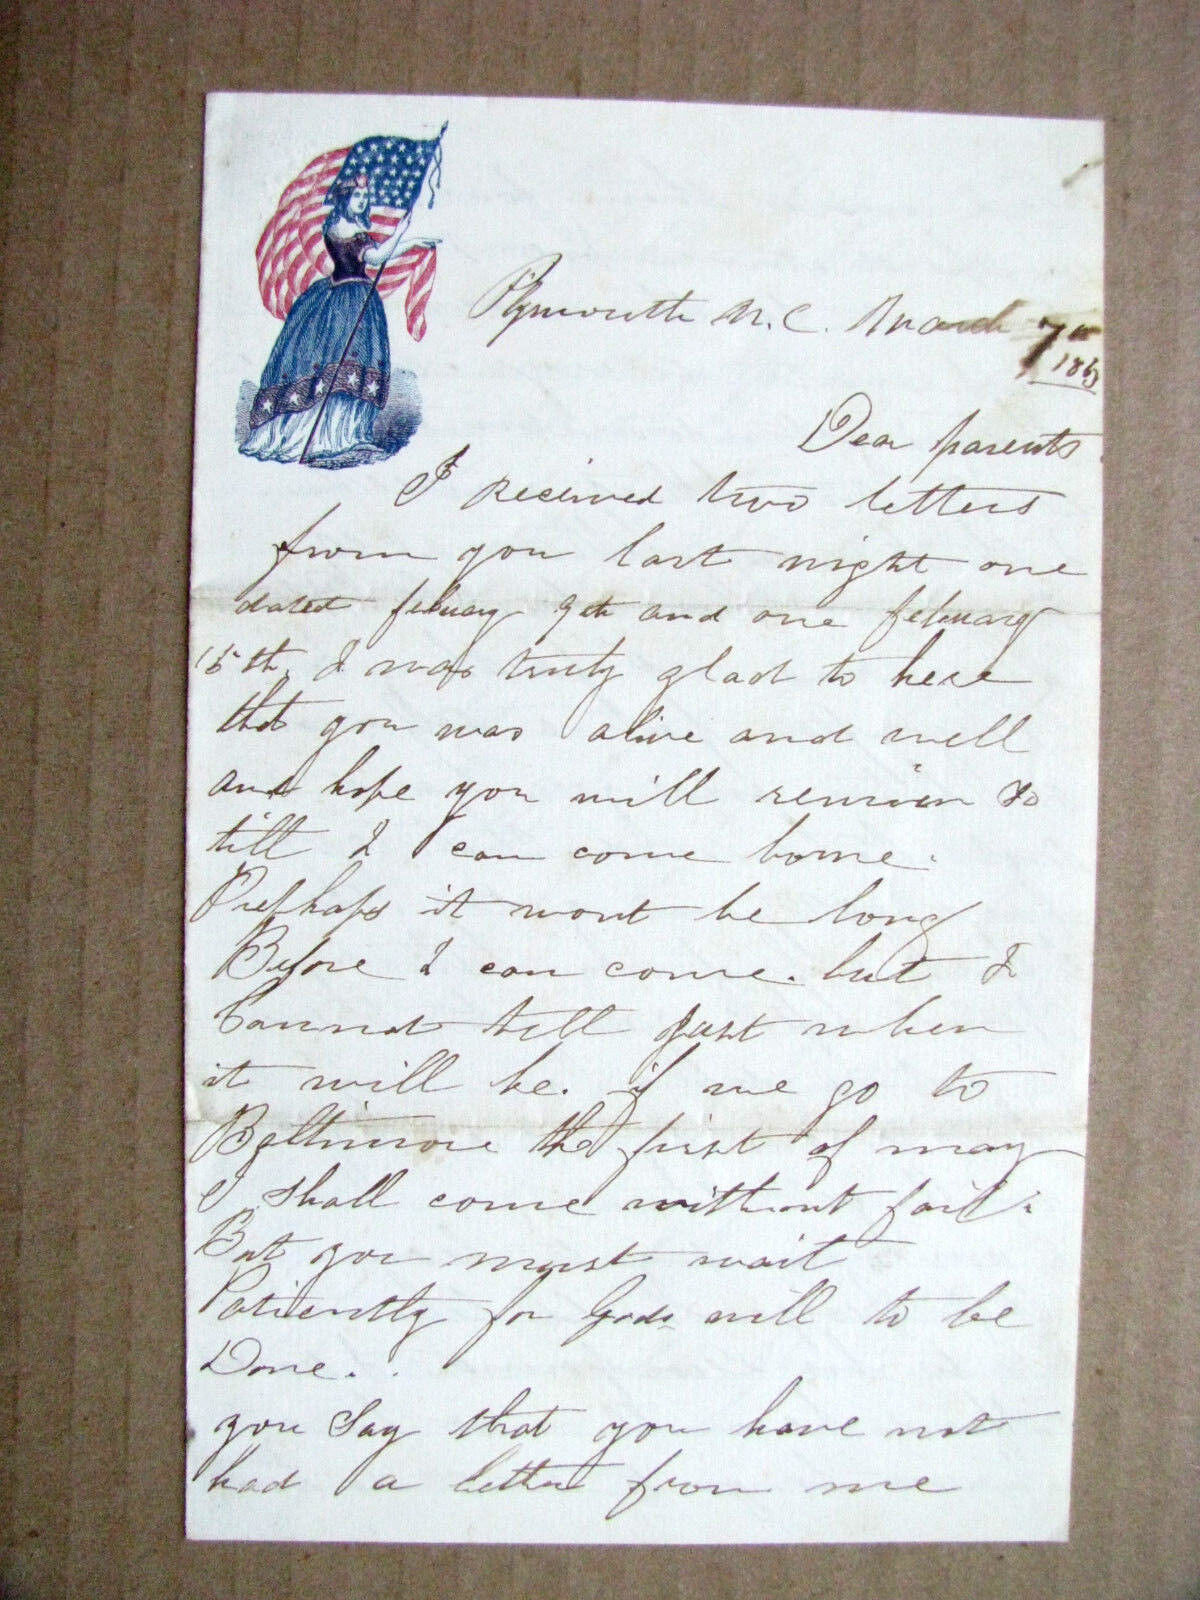 Plymouth N.C. March 7th
186
Dear parents
I received two letters
from you last night one
dated febuary 9th and one febuary
15th, I was truly glad to here
that you was alive and well
and hope you will remain so
till I can come home.
Prephaps it wont be long
Before I can come. but I
Cannot tell just when
it will be. if we go to
Baltimore the first of may
I shall come without fail.
But you must wait
Patiently for Gods will to be
Done..
you Say that you have not
had a letter from me